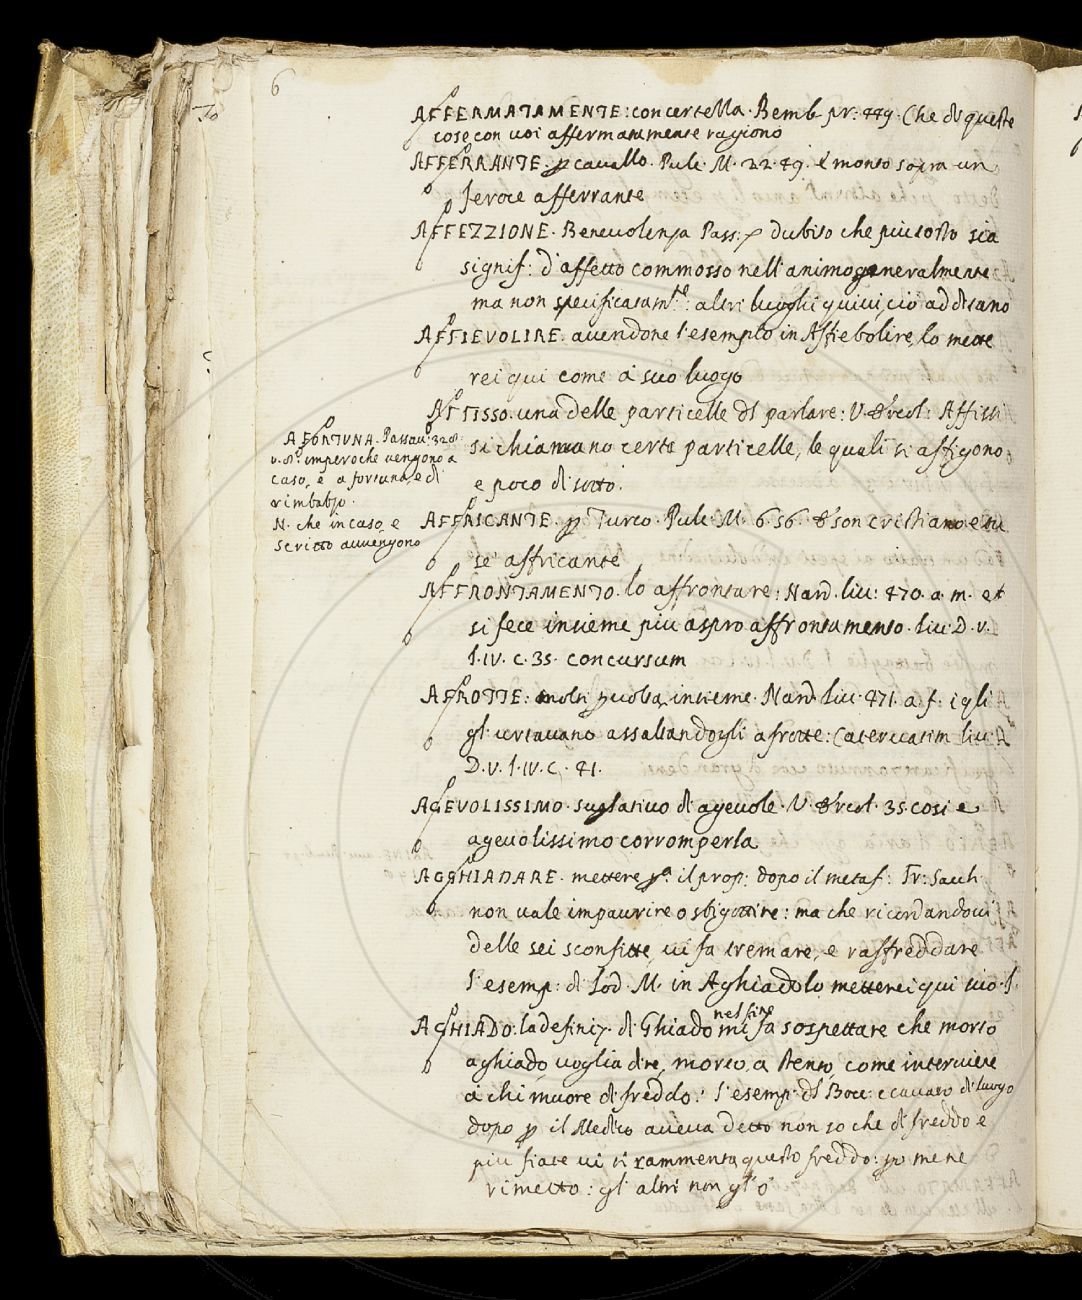 6
AFFERMATAMENTE: con certezza. Bemb. pr: 449. Che di queste
cose con voi affermatamente ragiono
AFFERRANTE. p cavallo. Pulc. M. 22. 49. è monto sopra un
feroce afferrante
AFFEZZIONE. Benevolenza Pass: p dubito che piu tosto sia
signif: d'affetto commosso nell'animo generalmente
ma non specificatam.te: altri luoghi quivi, ciò additano
AFFIEVOLIRE. avendone l'esemplo in Affiebolire, lo mette
rei qui come à suo luogo
AFFISSO. una delle particelle dl parlare: V. Ercol: Affissi
si chiamano certe particelle, le quali si affigono
e poco di sotto.
A FORTUNA. Passav: 328.
v. 8. imperoche vengono a
caso, e a fortuna, e di
rimbalzo.
N. che in caso, e
scritto avvengono
AFFRICANTE. p Turco. Pulc. M. 6. 56. E son cristiano e tu
se' affricante
AFFRONTAMENTO. lo affrontare: Nard. liv: 470. a. m. et
si fece insieme piu aspro affrontamento. liv. D. v.
l. iv. c. 35. concursum
AFROTTE: molti p volta insieme. Nard. liv. 471. a. f: i qli
gl' urtavano assaltandogli a frotte: Catervatim liv.
D. v. l. iv. c. 41.
AGEVOLISSIMO. suplativo di agevole. V. Ercol. 35. cosi e
agevolissimo corromperla
AGGHIADARE. mettere p.a: il prop: dopo il metaf: Fr: Sacch
non vale impaurire o sbigottire: ma che ricordandovi
delle sei sconfitte, vi fa tremare, e raffreddare
l'esemp: di lod. M. in Aghiado lo metterei qui suo. l.
AGHIADO: la definiz. di Ghiado nel fine mi fa sospettare che morto
aghiado, voglia dire, morto a stento, come interviene
à chi muore di freddo: l'esemp: dl Bocc: e cavato di luogo
dopo p il Medico aveva detto non so che di freddo e
piu fiate vi si rammenta questo freddo: po me ne
rimetto: gl' altri non gl' ò